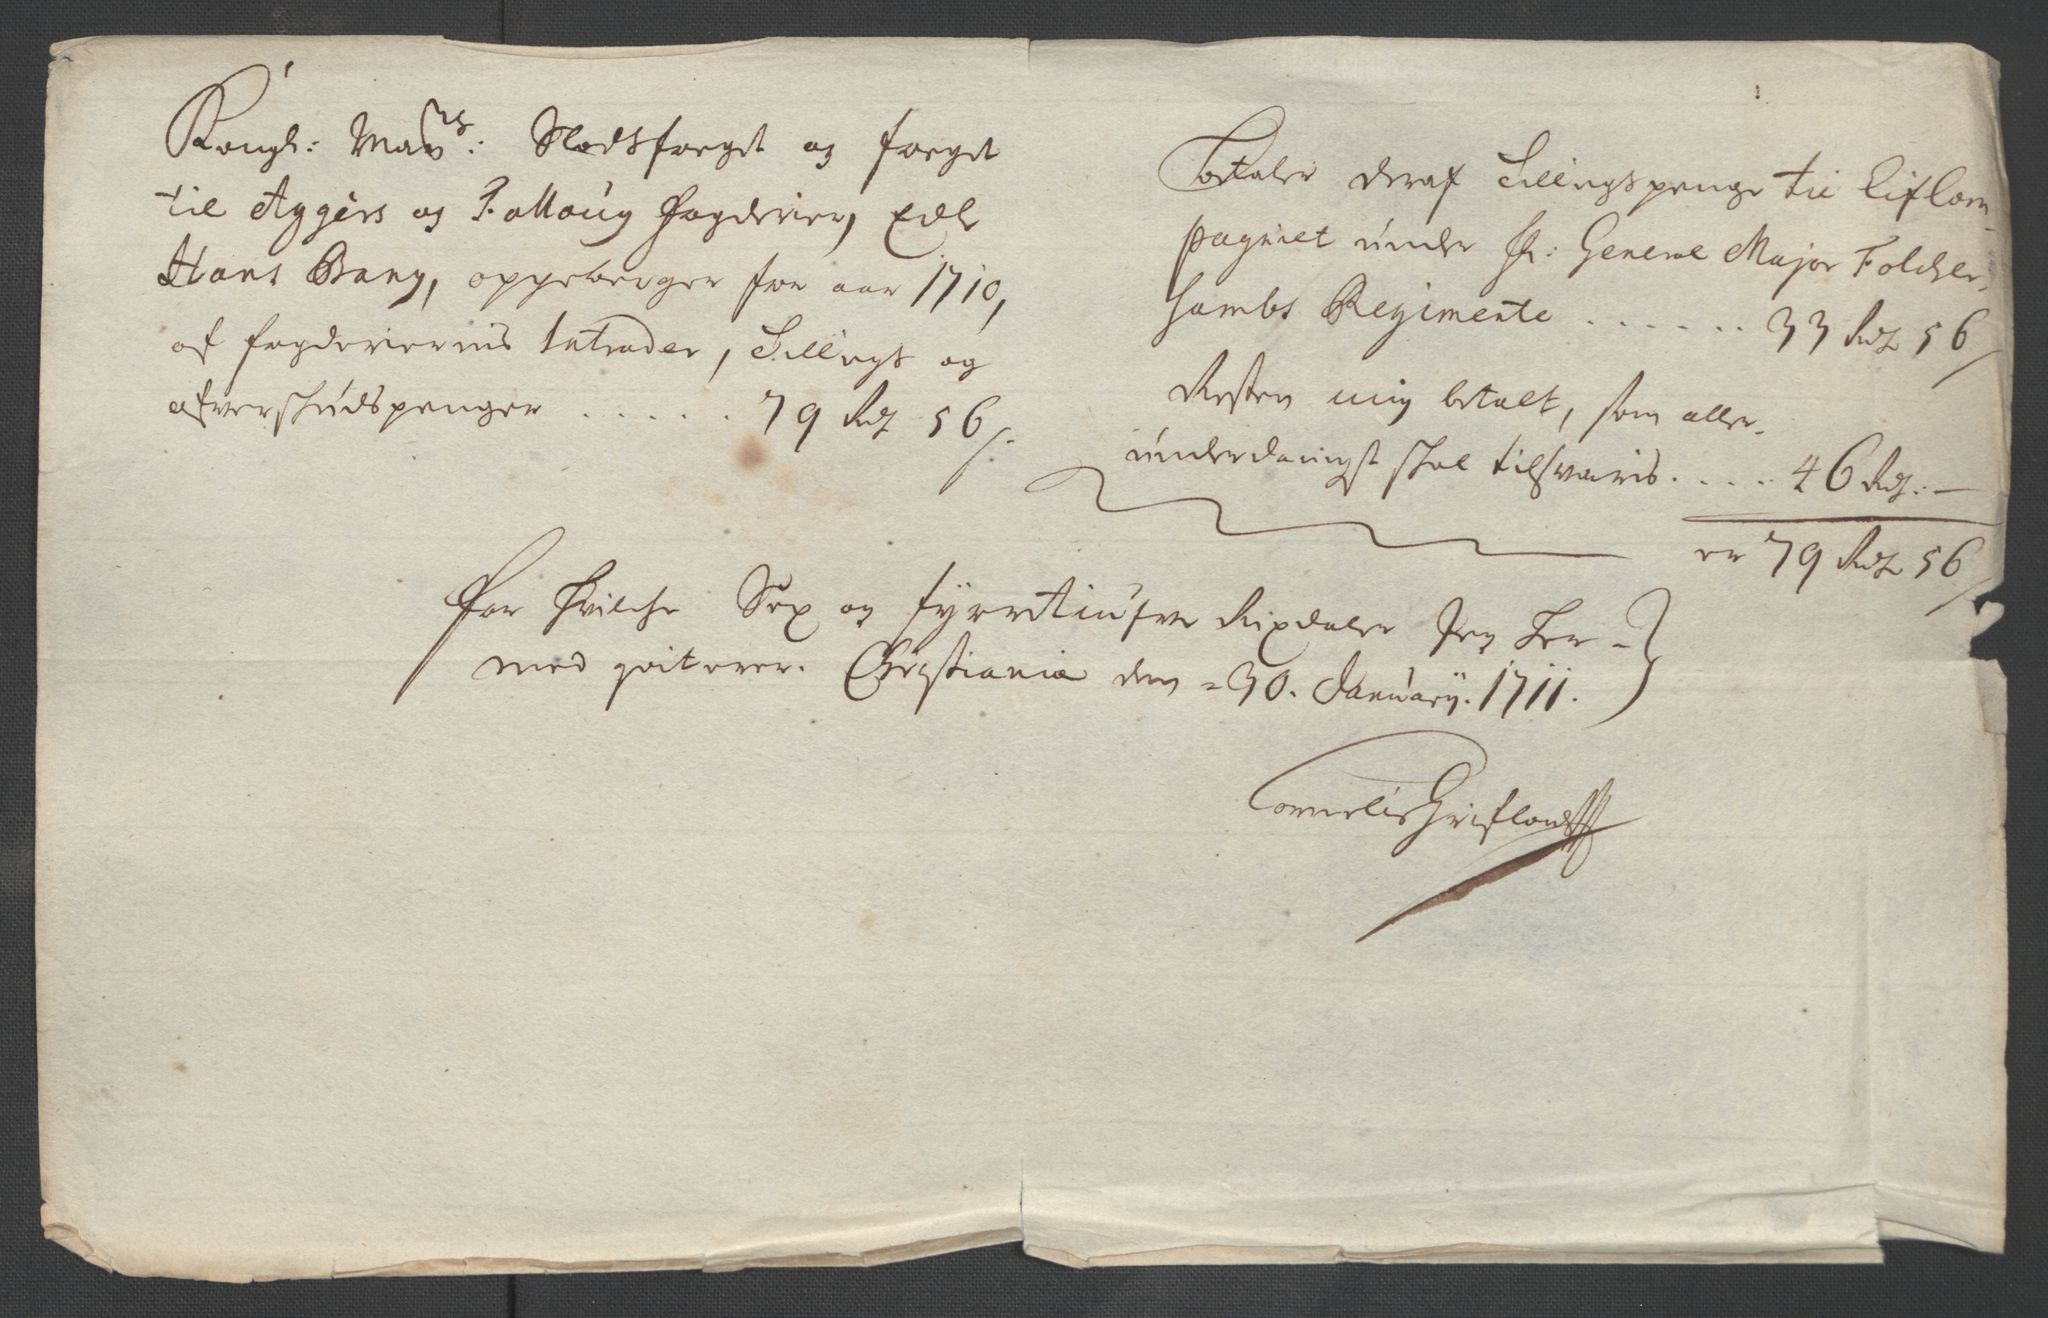 Kongl: May.ts: Slodsfoeget og foeget
til Aggers og Follough fogderier, Edle
Hans Bang, oppeberger for aar 1710,
af fogderiernis Intrader, Tillegs og
ofverskudspenger . . . . . 79 Rd 56 s.
Betaler deraf Tillegspenge til Lif Com-
pagniet under Hr: General Major Folcher-
sambs Regimente . . . . . . 33 Rd 56 s
Resten mig betalt, som aller-
underdanigst skal tilsvaris . . . . 46 Rd: —
er 79 Rd 56 s
For hvilche Sex og fyrretiufve Rixdaler Jeg her-
med qviterer. Christiania den 30. January. 1711.
Cornelis Griflow